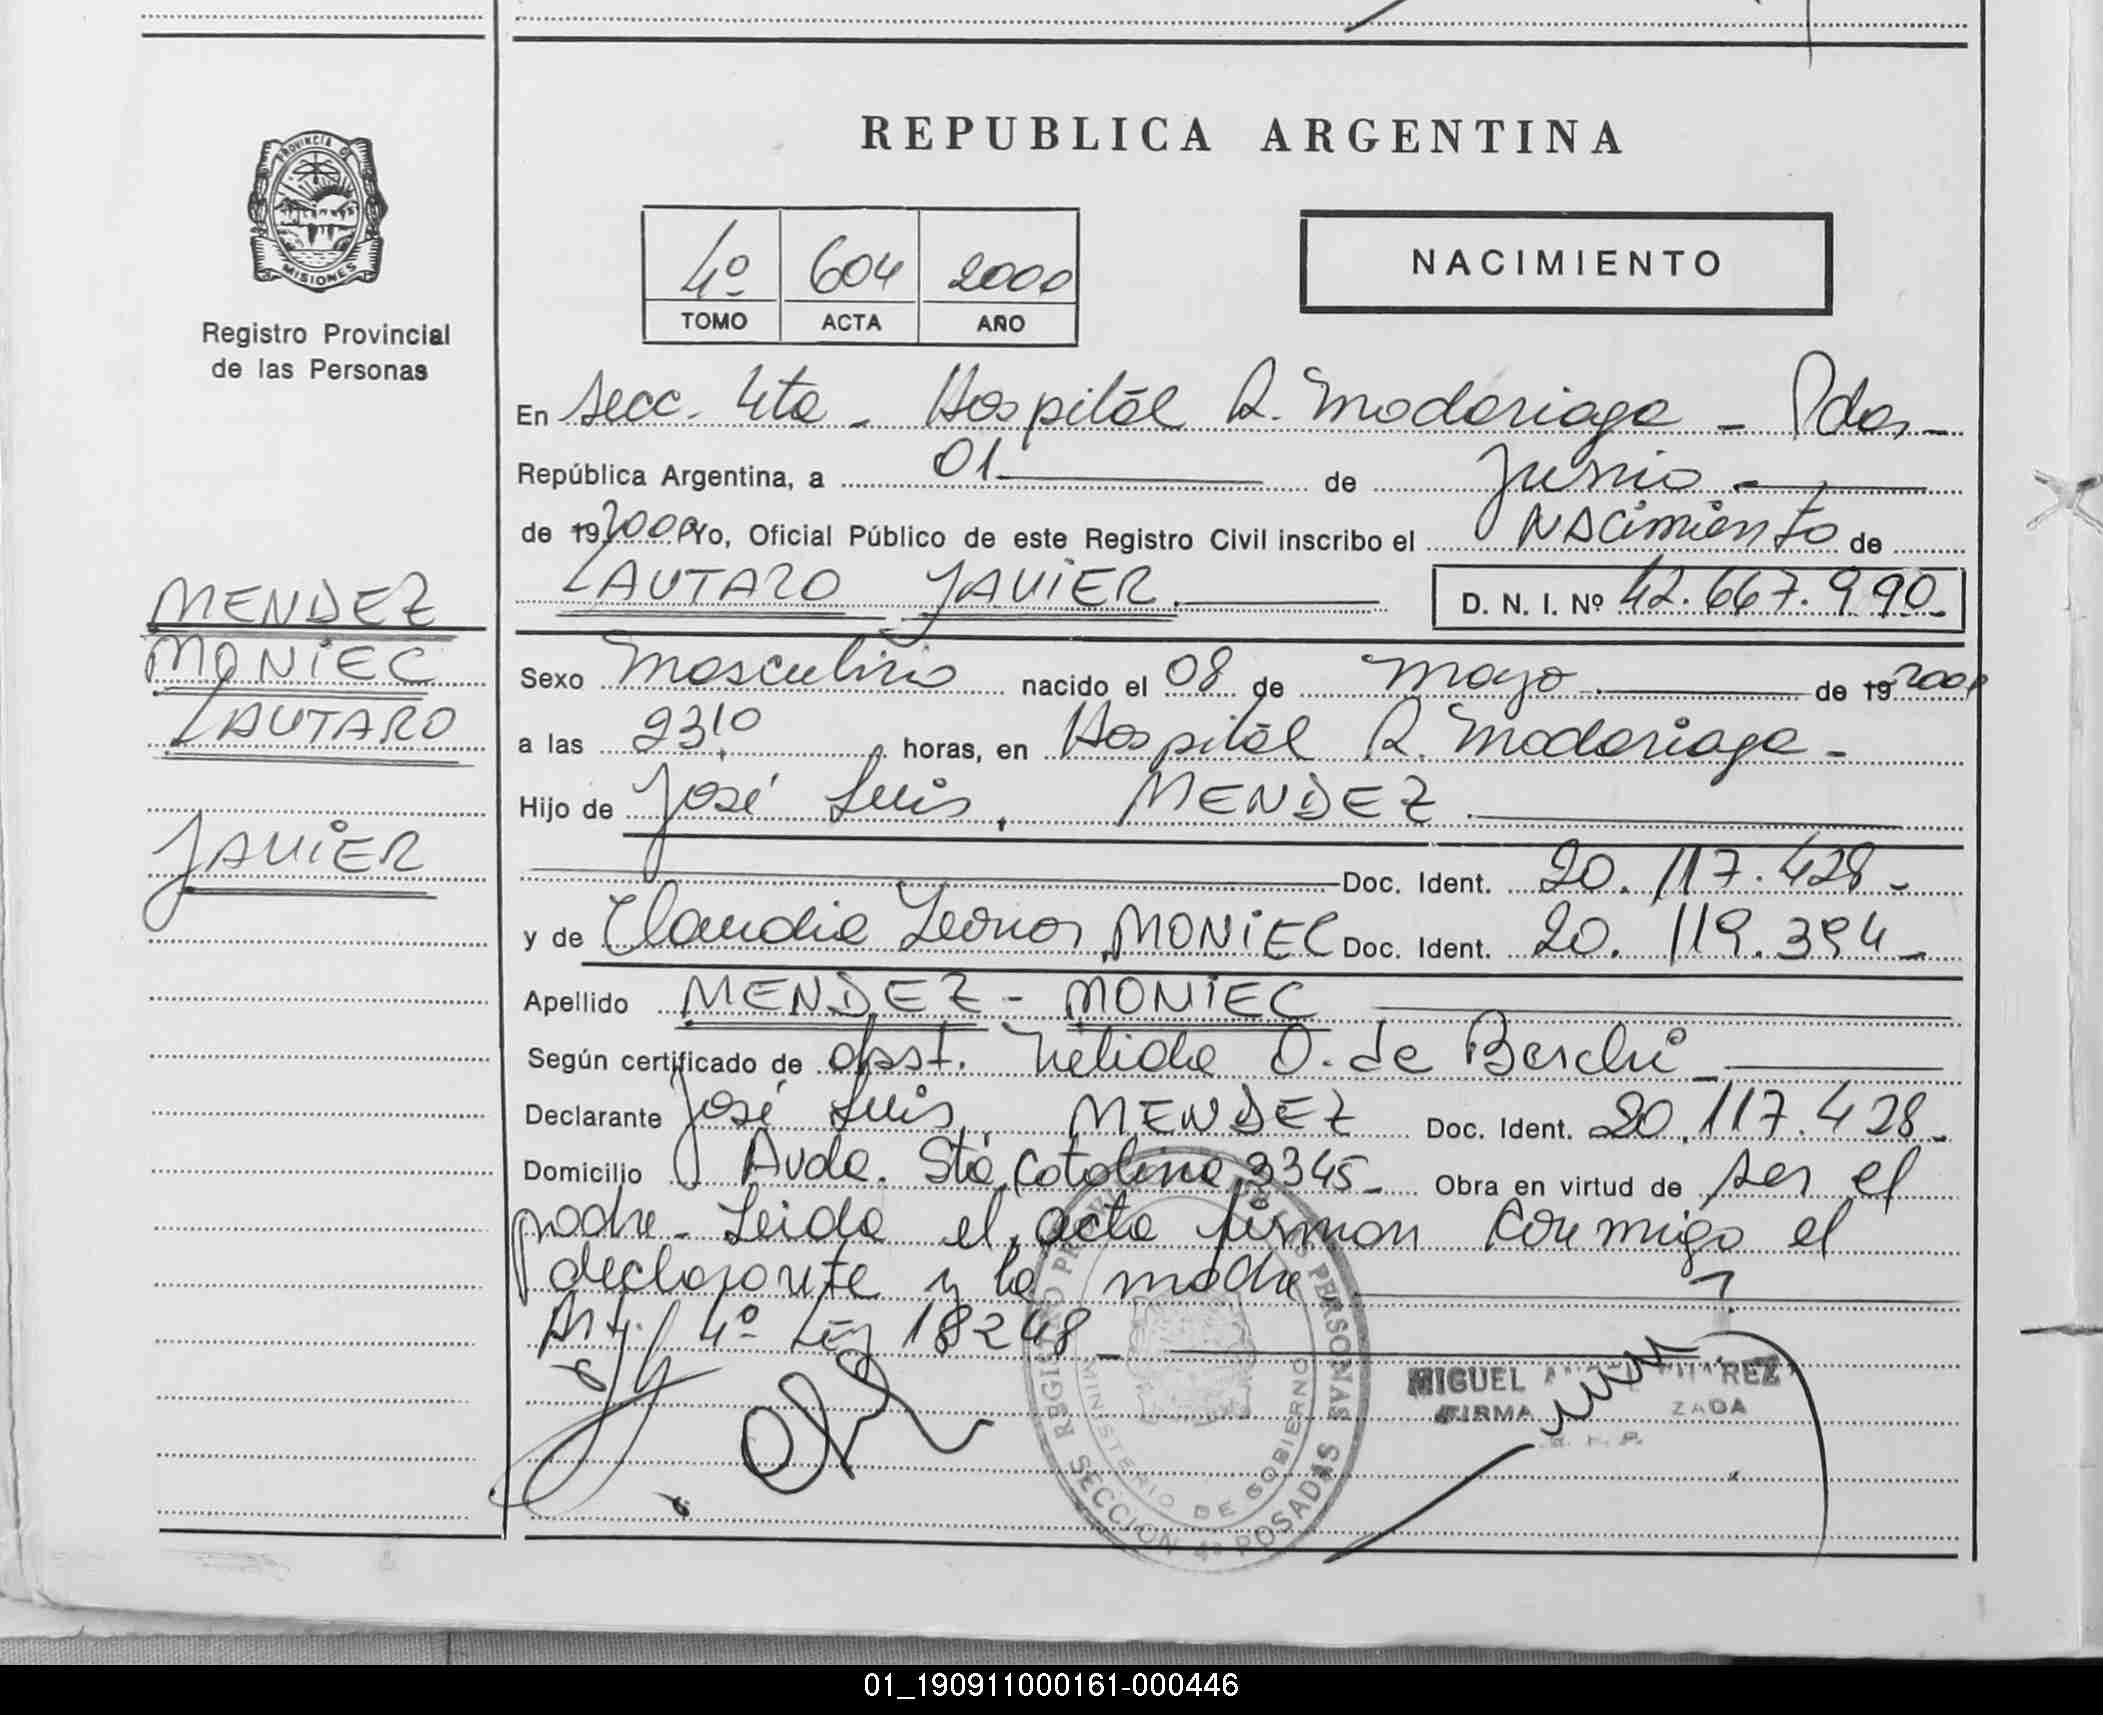 PROVINCIA D
MISIONES
Registro Provincial
de las Personas
REPUBLICA ARGENTINA
4º 604 2000
TOMO ACTA AÑO
NACIMIENTO
En Secc. 4ta - Hospital R. Madariaga - Pdas -
República Argentina, a 01 de Junio
de 19 2000 Yo, Oficial Público de este Registro Civil inscribo el NACimiento de
LAUTARO JAVIER. D. N. I. Nº 42.667.990-
MENDEZ
MONIEC
LAUTARO
JAVIER
Sexo Masculino nacido el 08 de Mayo de 19 2000
a las 23:10 horas, en Hospital R. Madariaga -
Hijo de José Luis, MENDEZ
Doc. Ident. 20.117.428-
y de Claudia Leonor MONIEC Doc. Ident. 20.119.394-
Apellido MENDEZ - MONIEC
Según certificado de obst. Nelida O. de
Declarante José Luis MENDEZ Doc. Ident. 20.117.428-
Domicilio Avda. Sta Catalina 3345- Obra en virtud de ser el
padre - Leida el acta firman conmigo el
declarante y la madre
Art. 4º Ley 18248-
MIGUEL
FIRMA
REGISTRO PERSONAS
MINISTERIO DE GOBIERNO
SECCION 4ª POSADAS
01_190911000161-000446